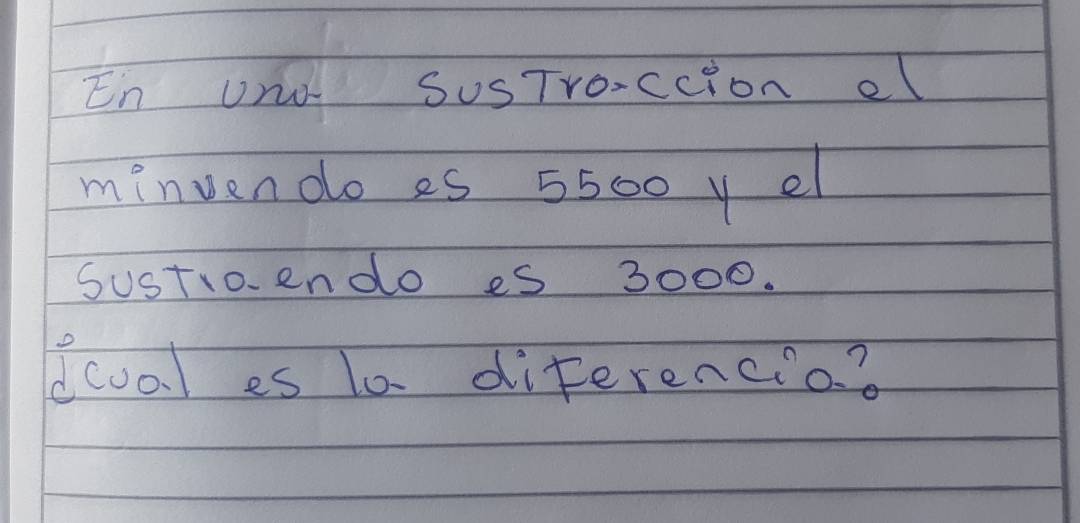 En una sustraccion el
minuendo es 5500 y el
sustraendo es 3000.
¿cual es la diferencia?